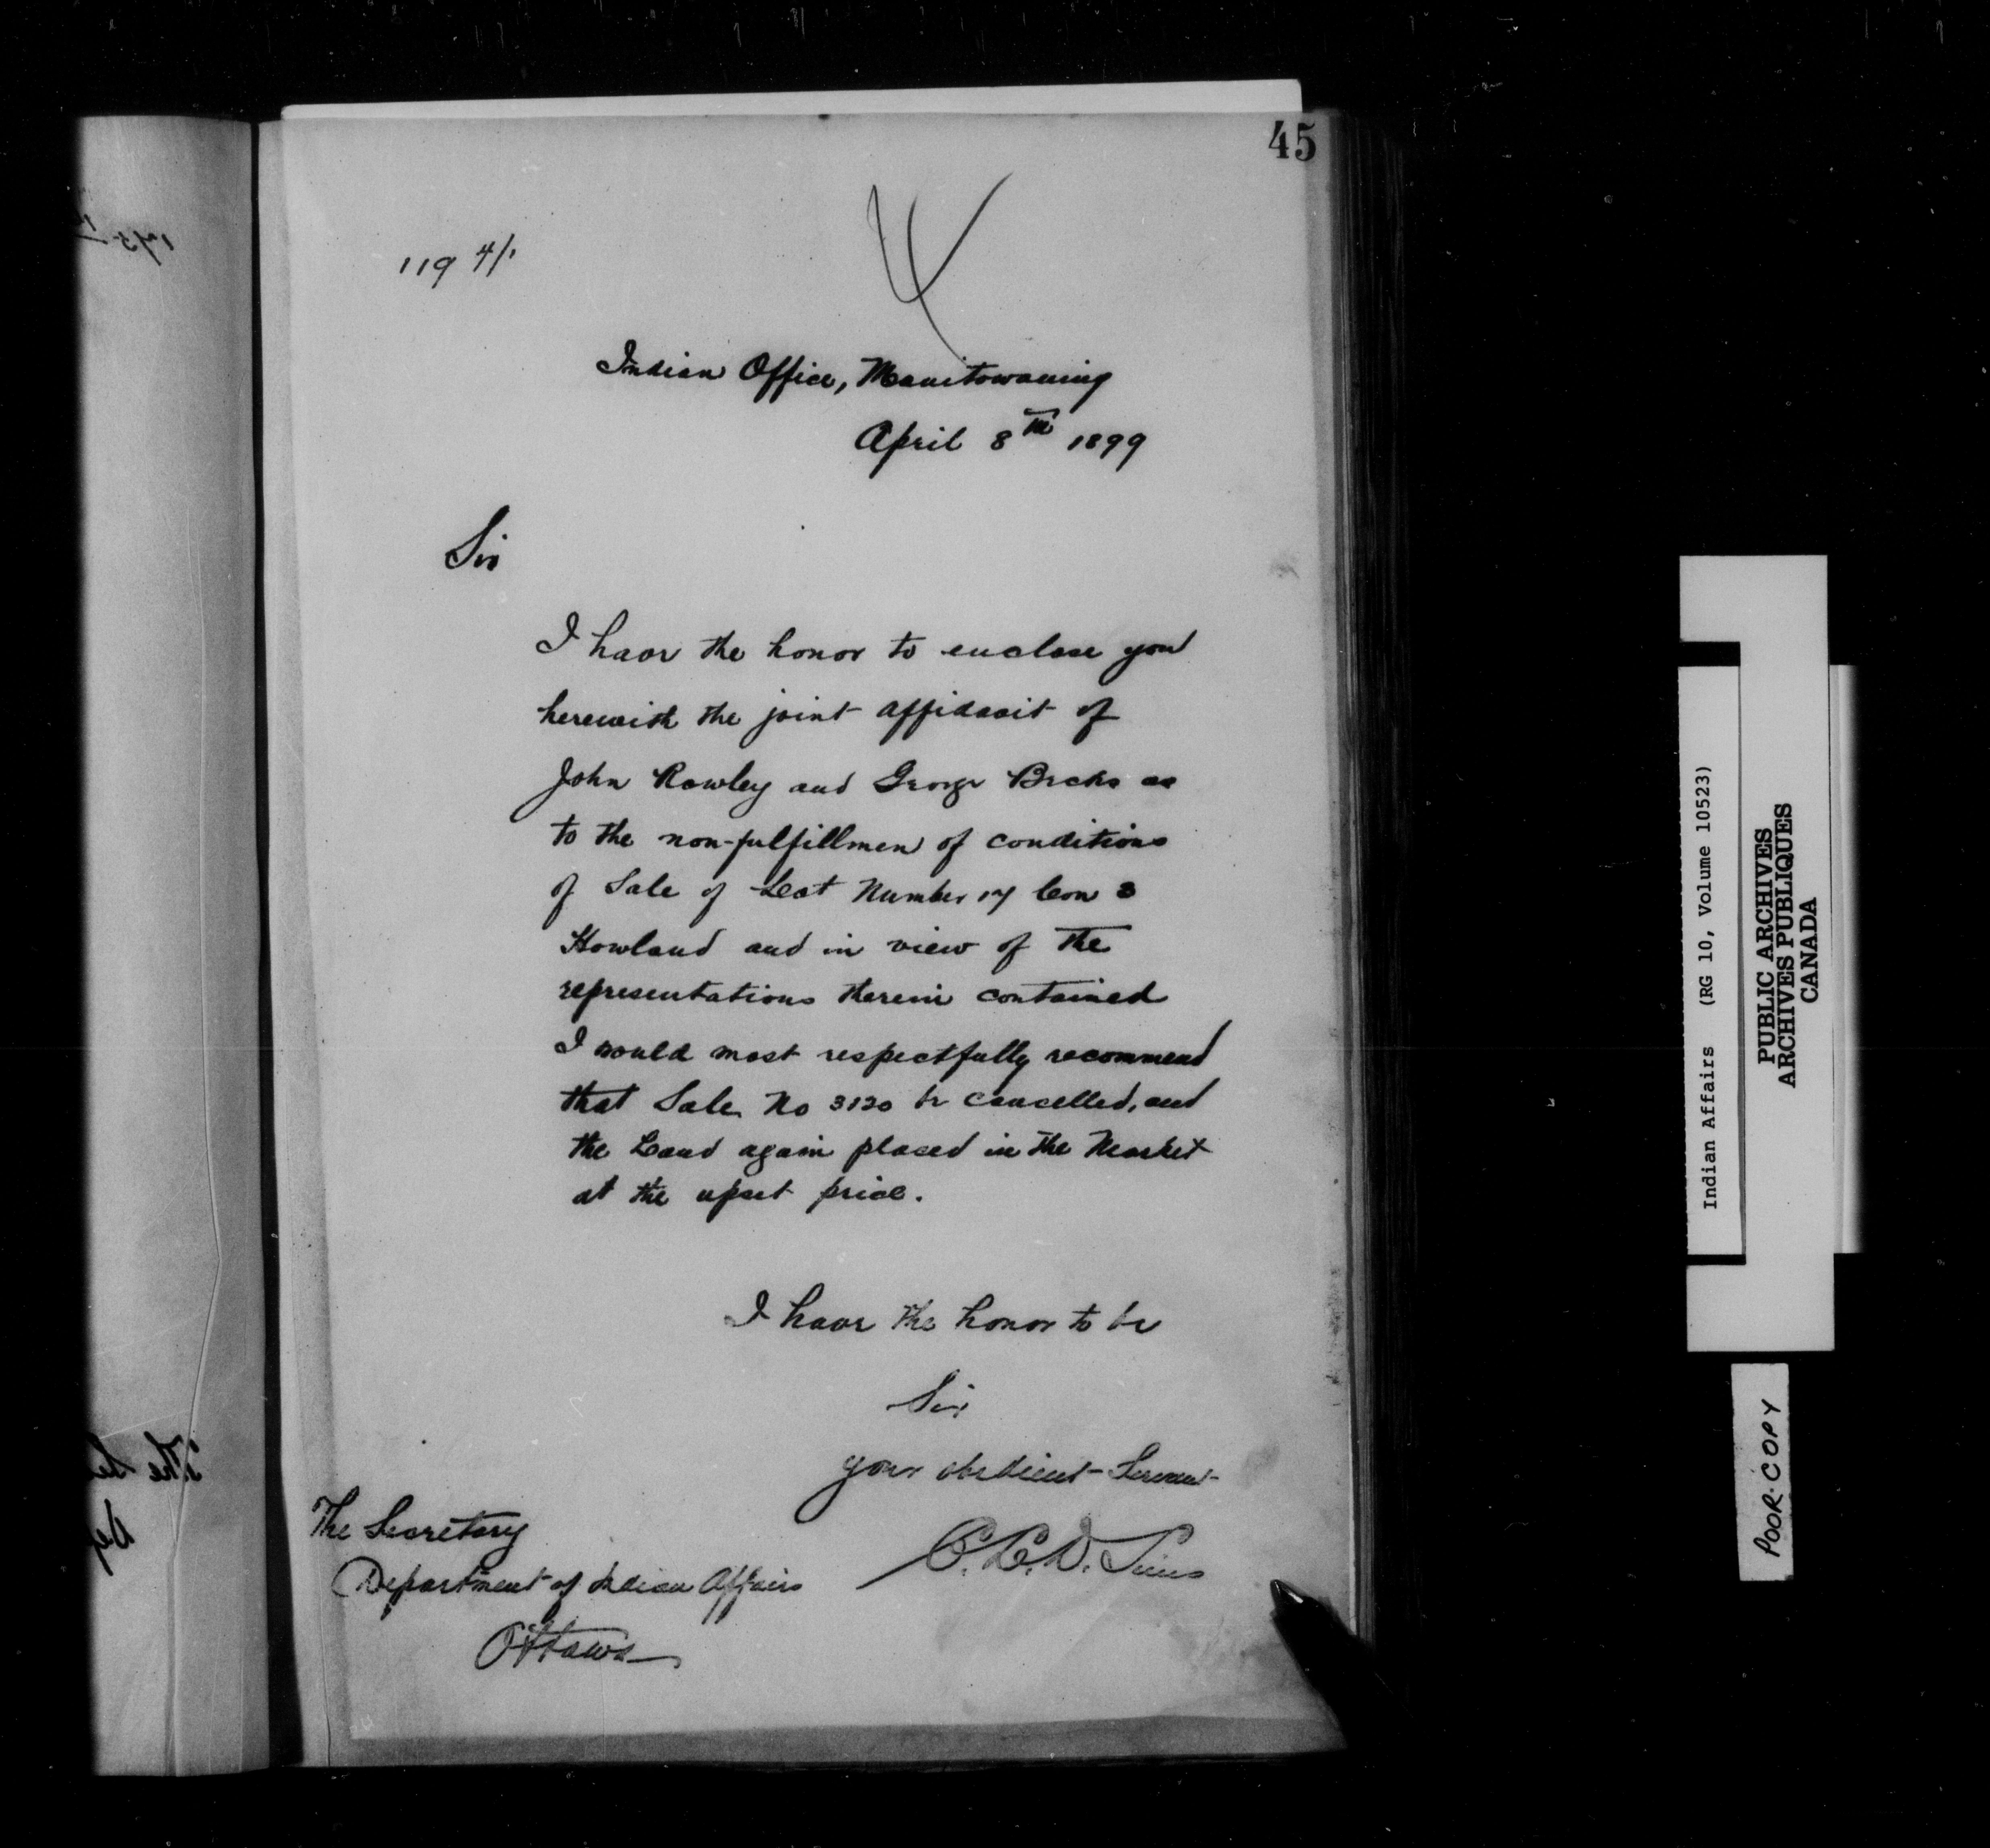 45
119 4/1
Indian Office, Manitowaning
April 8th 1899
Sir
I have the honor to enclose you
herewith the joint affidavit of
John Rowley and George Becks as
to the non-fulfillmen of conditions
of Sale of Lot Number 17 Con 3
Howland and in view of the
representations therein contained
I would most respectfully recommend
that Sale No 3120 be cancelled, and
the Land again placed in the Market
at the upset price.
I have the honor to be
Sir
your obedient Servant
C. L. D. Sims
The Secretary
Department of Indian Affairs
Ottawa
Indian Affairs (RG 10, Volume 10523)
PUBLIC ARCHIVES
ARCHIVES PUBLIQUES
CANADA
POOR COPY